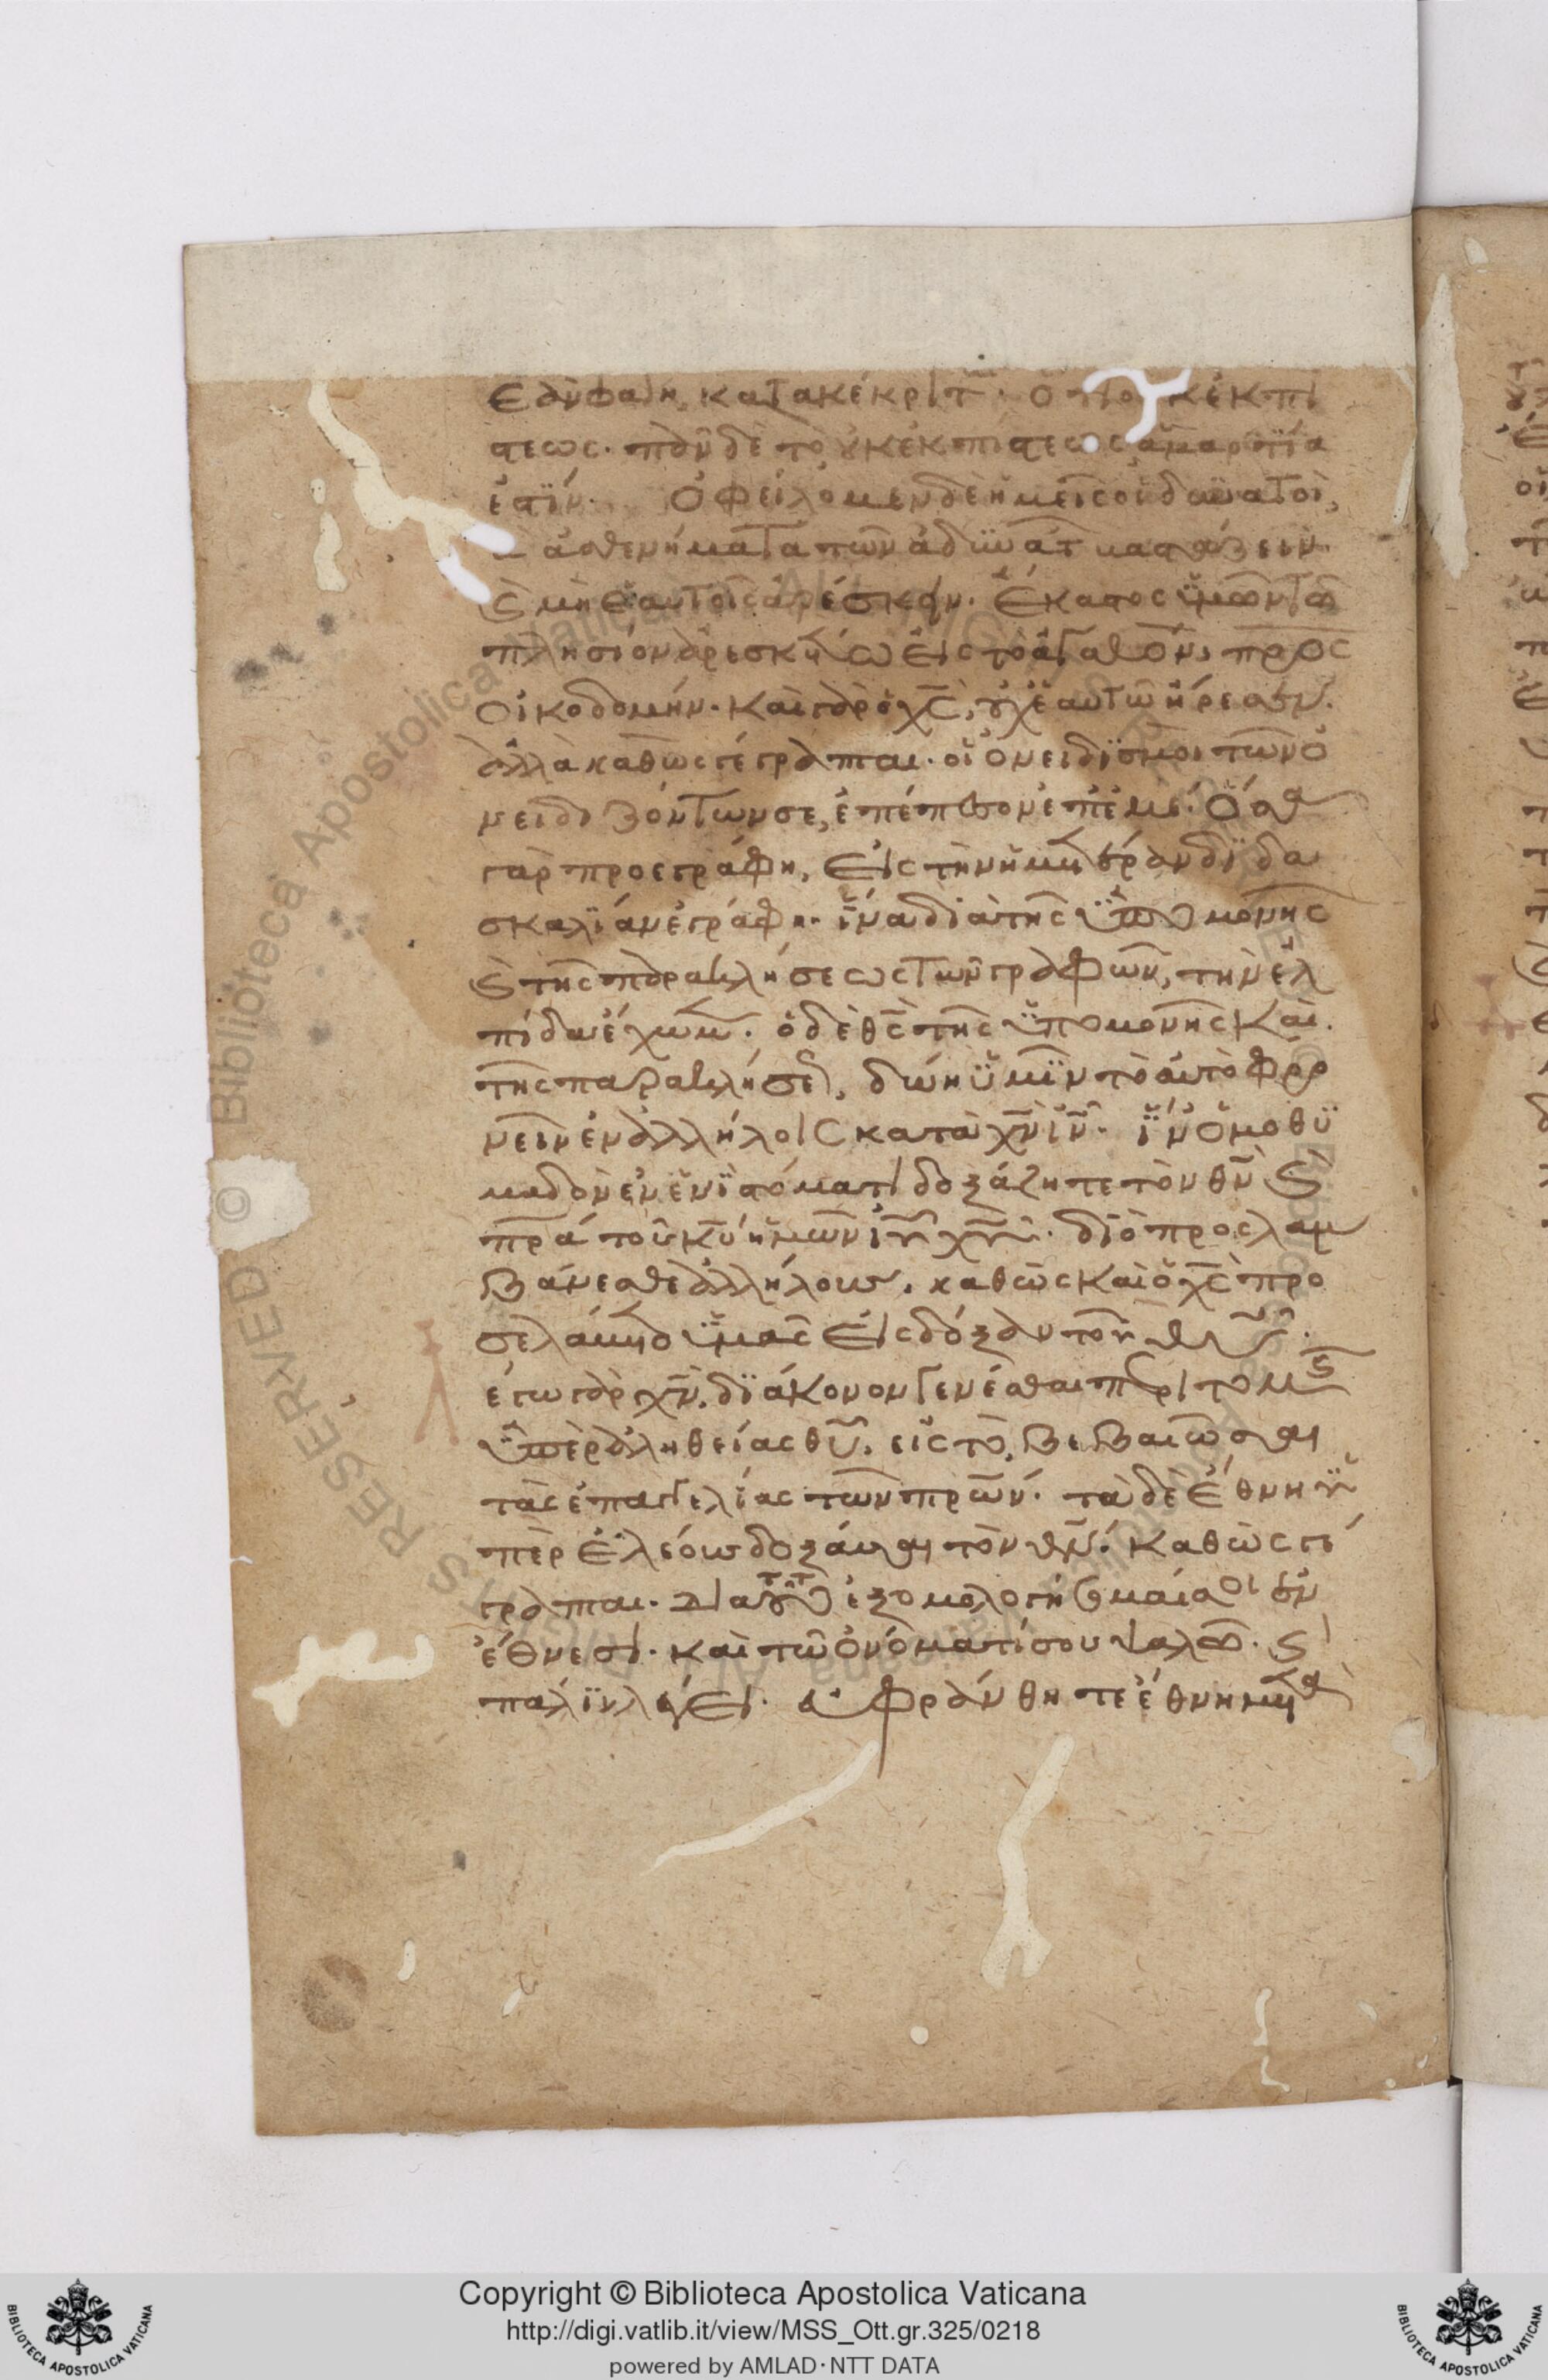 ἐὰν φάγη κατακέκριτ. ὅτι οὐκ ἐκ πί
στεως. πᾶν δὲ τὸ οὐκ ἐκ πίστεως ἁμαρτία
ἐστίν. Ὀφείλομεν δὲ ἡμεῖς οἱ δυνατοὶ,
τὰ ἀσθενήματα τῶν ἀδυνάτ βαστάζειν.
ϗ μὴ ἑαυτοῖς ἀρέσκειν. ἕκαστος ὑμῶν τῶ
πλησίον ἀρεσκέτω εἰς τὸ ἀγαθὸν, πρὸς
οἰκοδομήν. καὶ γὰρ ὁ χς, οὐχ ἑαυτῶ ἤρεσεν.
ἀλλὰ καθὼς γέγραπται. οἱ ὀνειδισμοὶ τῶν ὀ
νειδιζόντων σε, ἐπέπεσον ἐπ ἐμέ. ὅσα
γὰρ προεγράφη, εἰς τὴν ἡμετέραν διδα
σκαλίαν ἐγράφη. ἵνα διὰ τῆς ὑπομονῆς
ϗ τῆς παρακλήσεως τῶν γραφῶν, τὴν ἐλ
πίδα ἔχωμεν. ὁ δὲ θς τῆς ὑπομονῆς καὶ
τῆς παρακλήσε, δώη ὑμῖν τὸ αὐτὸ φρο
νεῖν ἐν ἀλλήλοις κατὰ χν ιν. ἵν ὁμοθυ
μαδὸν ἐν ἑνὶ στόματι δοξάζητε τὸν θν ϗ
πρα τοῦ κυ ἡμῶν ιυ χυ. διὸ προσλαμ
βάνεσθε ἀλλήλους, καθὼς καὶ ὁ χς προ
σελάβετο ὑμᾶς εἰς δόξαν τοῦ θυ.
γω γὰρ χν, διάκονον γενέσθαι περιτομς
ὑπὲρ ἀληθείας θυ, εἰς τὸ, βεβαιῶσαι
τὰς ἐπαγγελίας τῶν πρων. τὰ δὲ ἔθνη ὑ
πὲρ ἐλέους δοξάσαι τὸν θν. καθὼς γέ
γραπται. διατοῦτο ἐξομολογήσομαί σοι ἐν
ἔθνεσι. καὶ τῶ ὀνόματί σου ψαλῶ. ϗ
πάλιν λέγει. εὐφράνθητε ἔθνη μετὰ
Copyright © Biblioteca Apostolica Vaticana
http://digi.vatlib.it/view/MSS_Ott.gr.325/0218
powered by AMLAD·NTT DATA